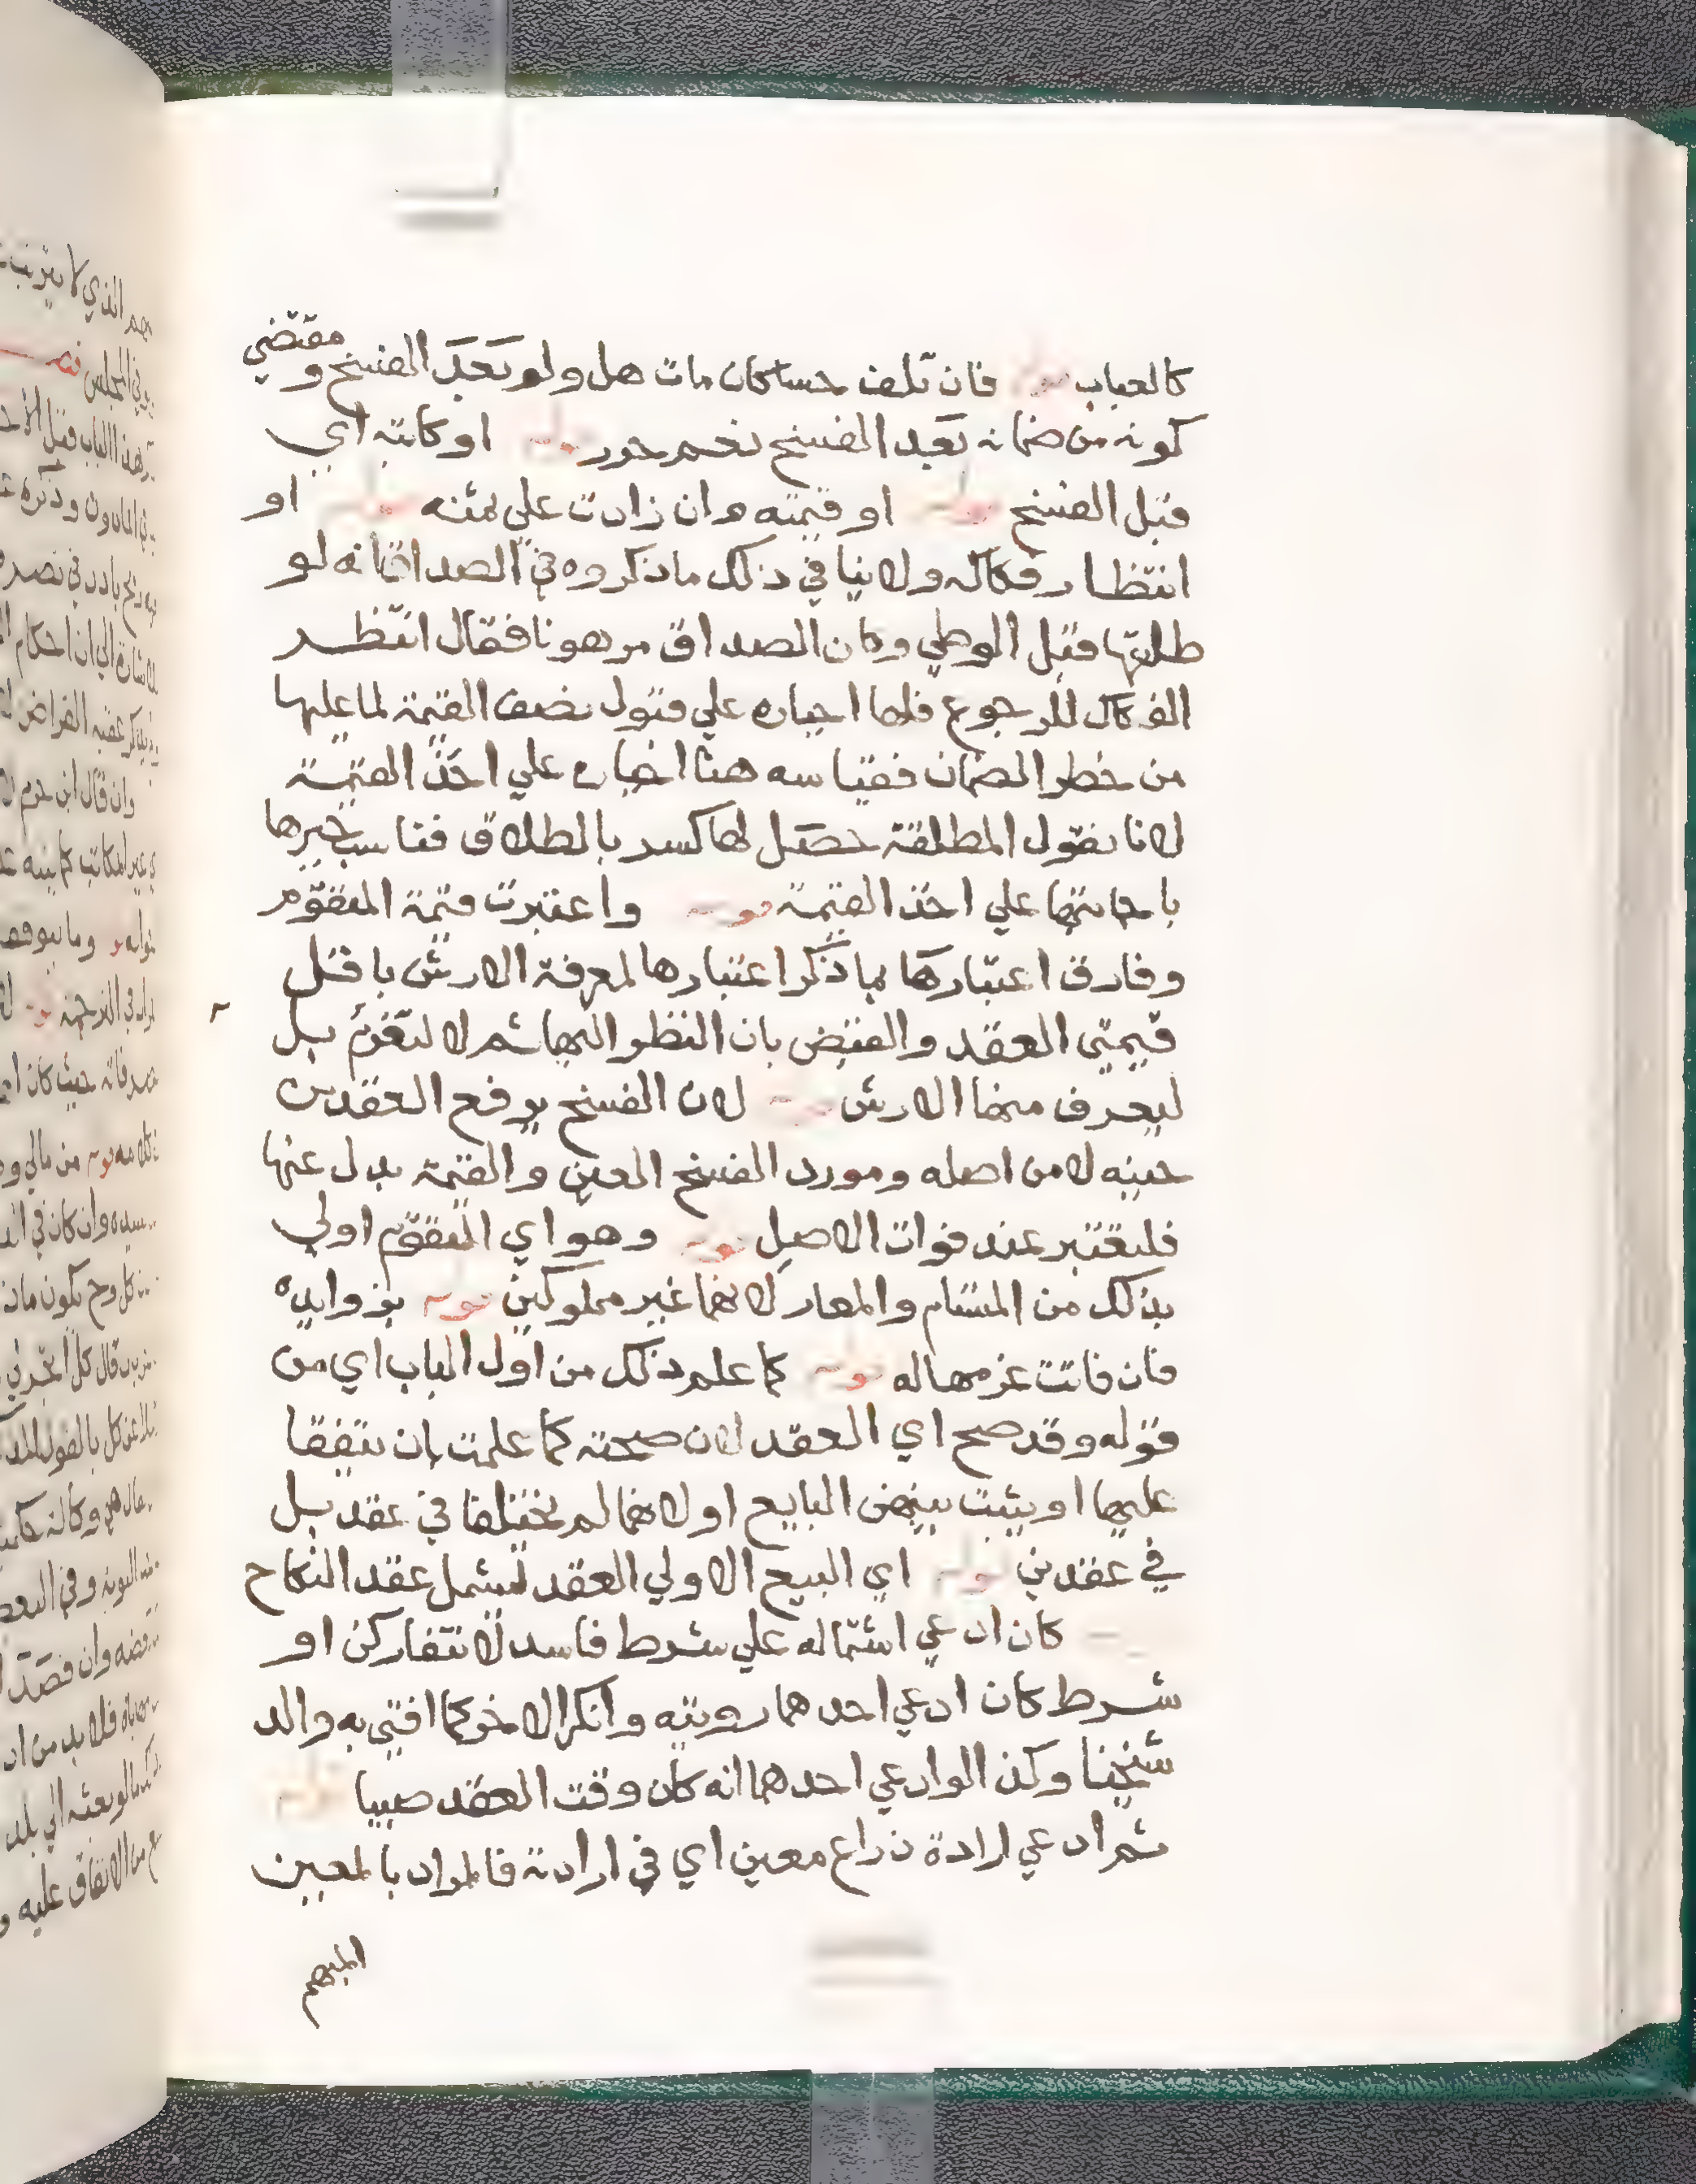 كالعباب قوله فان تلف حسا كان مات هل ولو بعد الفسخ ومقتضي
كونه من ضمانه بعد الفسخ نعم حرر قوله او كاتبه اي
قبل الفسخ قوله او قيمته وان زادت علي ثمنه قوله او
انتظار فكاكه ولا ينافي ذلك ما ذكروه في الصداق انه لو
طلقها قبل الوطي وكان الصداق مرهونا فقال انتظر
الفكاك للرجوع فلها اجباره علي قبول نصف القيمة لما عليها
من خطر الضمان فقياسه هنا اجباره علي اخذ القيمة
لانا نقول المطلقة حصل لها كسر بالطلاق فناسب جبرها
باجابتها علي اخذ القيمة قوله واعتبرت قيمة المتقوم
وفارق اعتبارها بما ذكر اعتبارها لمعرفة الارش باقل
قيمتي العقد والقبض بان النظر اليها ثم لا لتغرم بل
ليعرف منها الارش قوله لان الفسخ يرفع العقد من
حينه لا من اصله ومورد الفسخ العين والقيمة بدل عنها
فليعتبر عند فوات الاصل قوله وهو اي المتقوم اولي
بذلك من المستام والمعار لانهما غير مملوكين قوله بزوايده
فان فاتت غرمها له قوله كما علم ذلك من اول الباب اي من
قوله وقد صح اي العقد لان صحته كما علمت بان يتفقا
عليها او يثبت ببينهن البايع او لانهما لم يختلفا في عقد بل
في عقدين قوله اي البيع الاولي العقد ليشمل عقد النكاح
كان ادعي اشتماله علي شرط فاسد لا نتفا ركن او
شرط كان ادعي احدهما رويته وانكر الاخر كما افتي به والد
شيخنا وكذا لو ادعي احدهما انه كان وقت العقد صبيا قوله
ثم ادعي ارادة ذراع معين اي في ارادته فالمراد بالمعين
المبهم